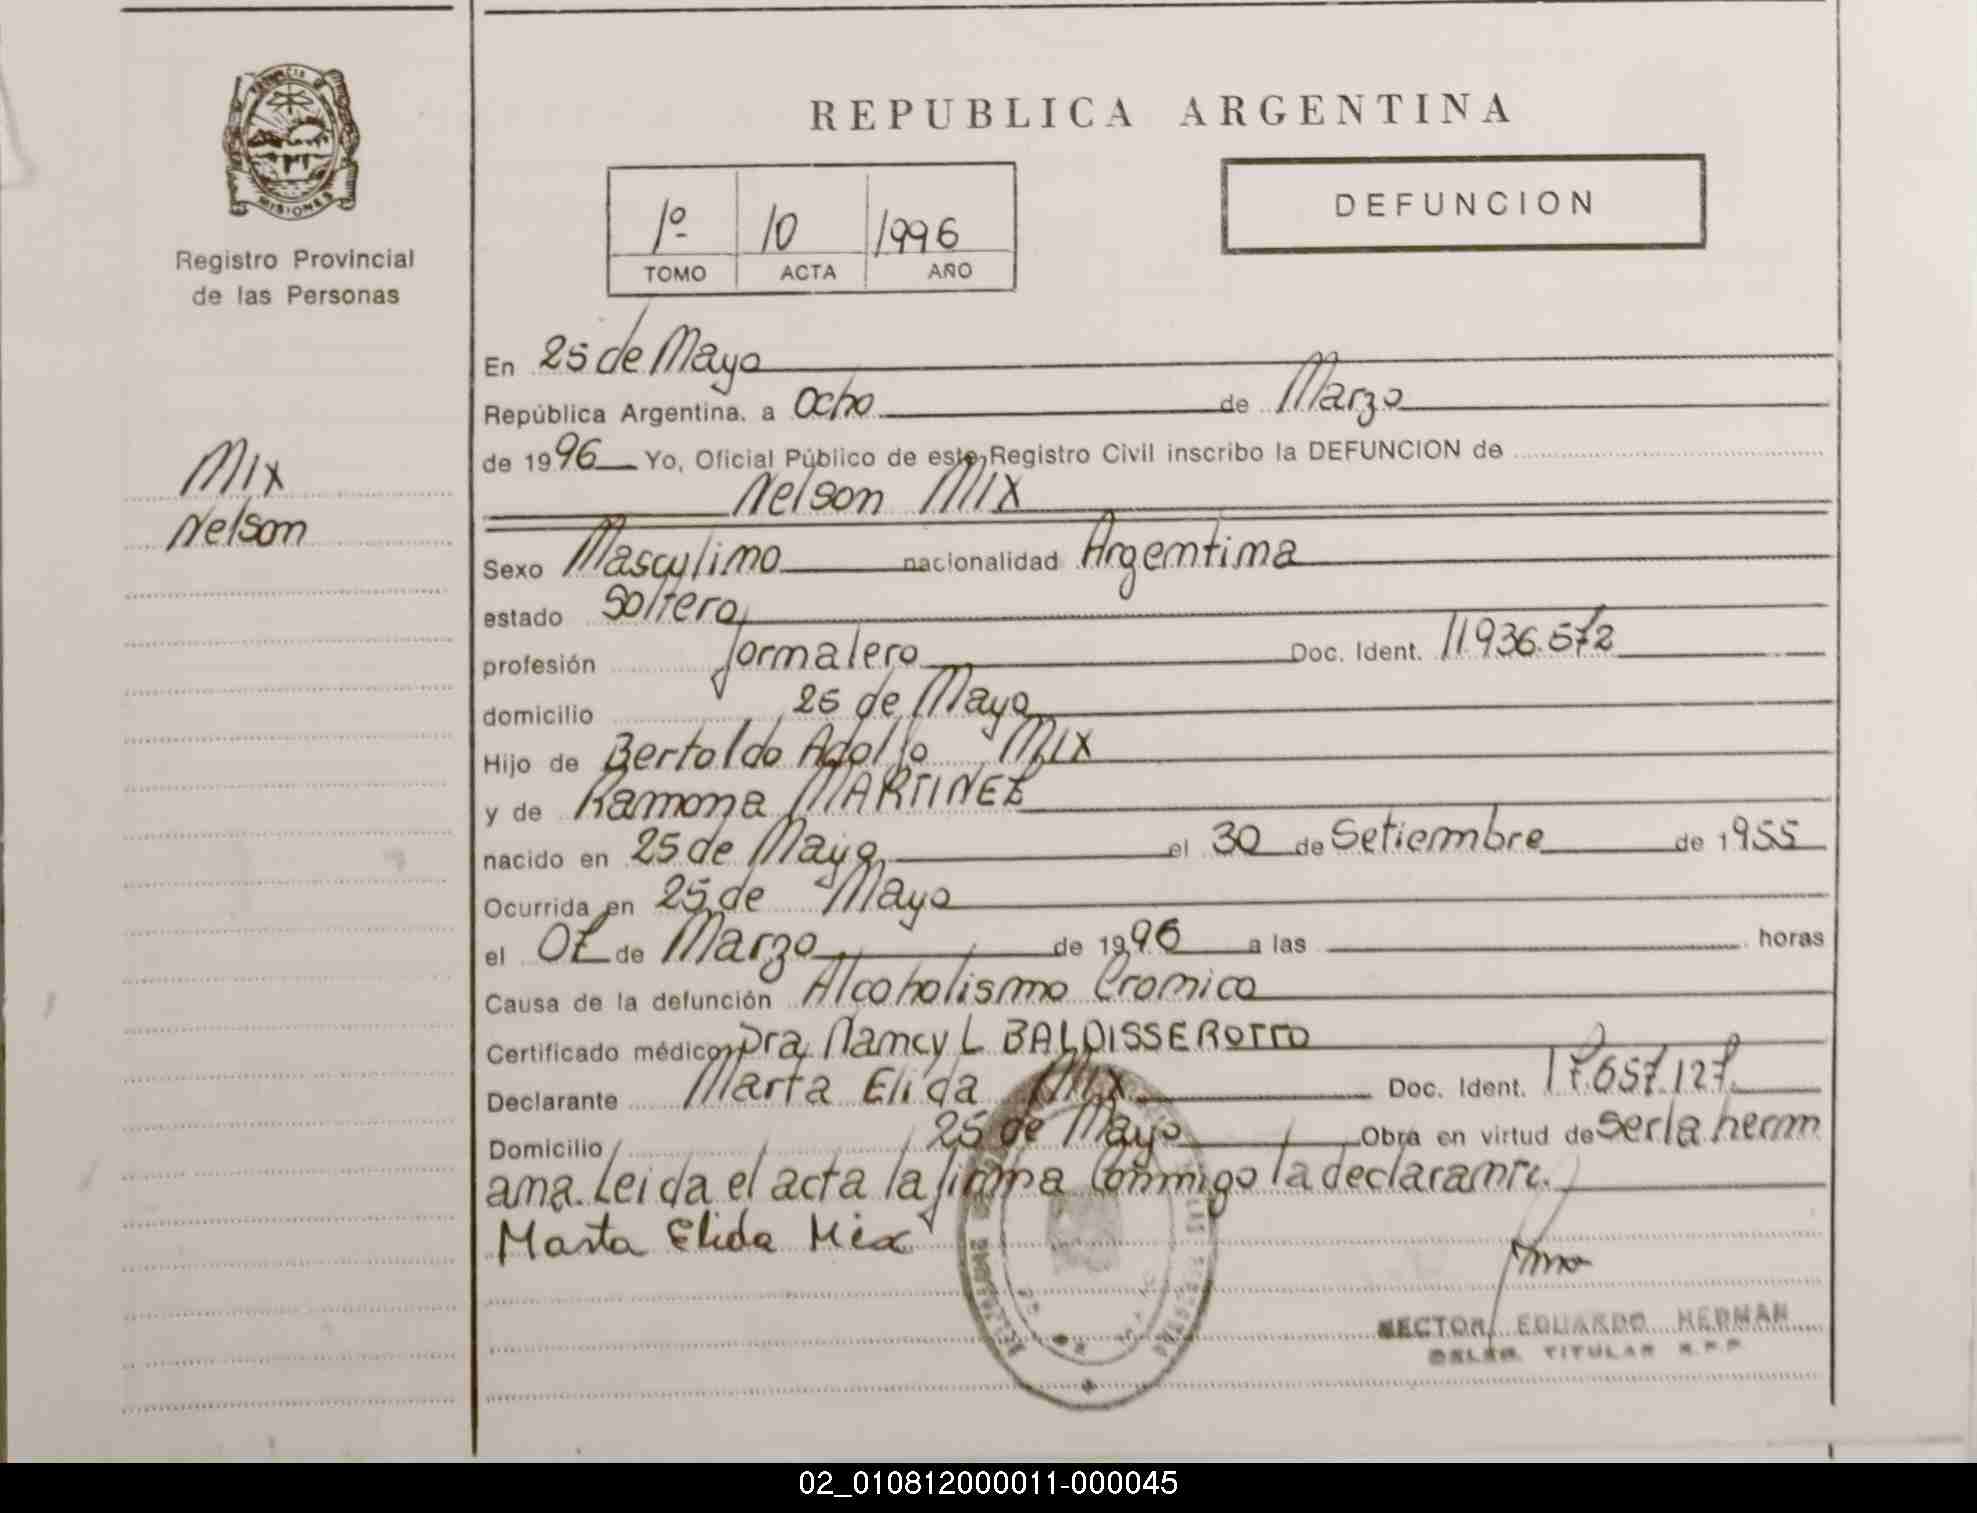 PROVINCIA DE
MISIONES
Registro Provincial
de las Personas
Mix
Nelson
REPUBLICA ARGENTINA
1º 10 1996
TOMO ACTA AÑO
DEFUNCION
En 25 de Mayo
República Argentina, a Ocho de Marzo
de 1996 Yo, Oficial Público de este Registro Civil inscribo la DEFUNCION de
Nelson MIX
Sexo Masculino nacionalidad Argentina
estado Soltero
profesión Jornalero Doc. Ident. 11936.572
domicilio 25 de Mayo
Hijo de Bertoldo Adolfo MIX
y de Ramona MARTINEZ
nacido en 25 de Mayo el 30 de Setiembre de 1955
Ocurrida en 25 de Mayo
el 07 de Marzo de 1996 a las horas
Causa de la defunción Alcoholismo Cronico
Certificado médico Dra Nancy L BALDISSEROTTO
Declarante Marta Elida Mix Doc. Ident. 17.657.127
Domicilio 25 de Mayo Obra en virtud de ser la herm
ana. Leida el acta la firma Conmigo la declarante.
Marta Elida Mix
HECTOR EDUARDO HEDMAN
DELEG. TITULAR R.P.P.
02_010812000011-000045